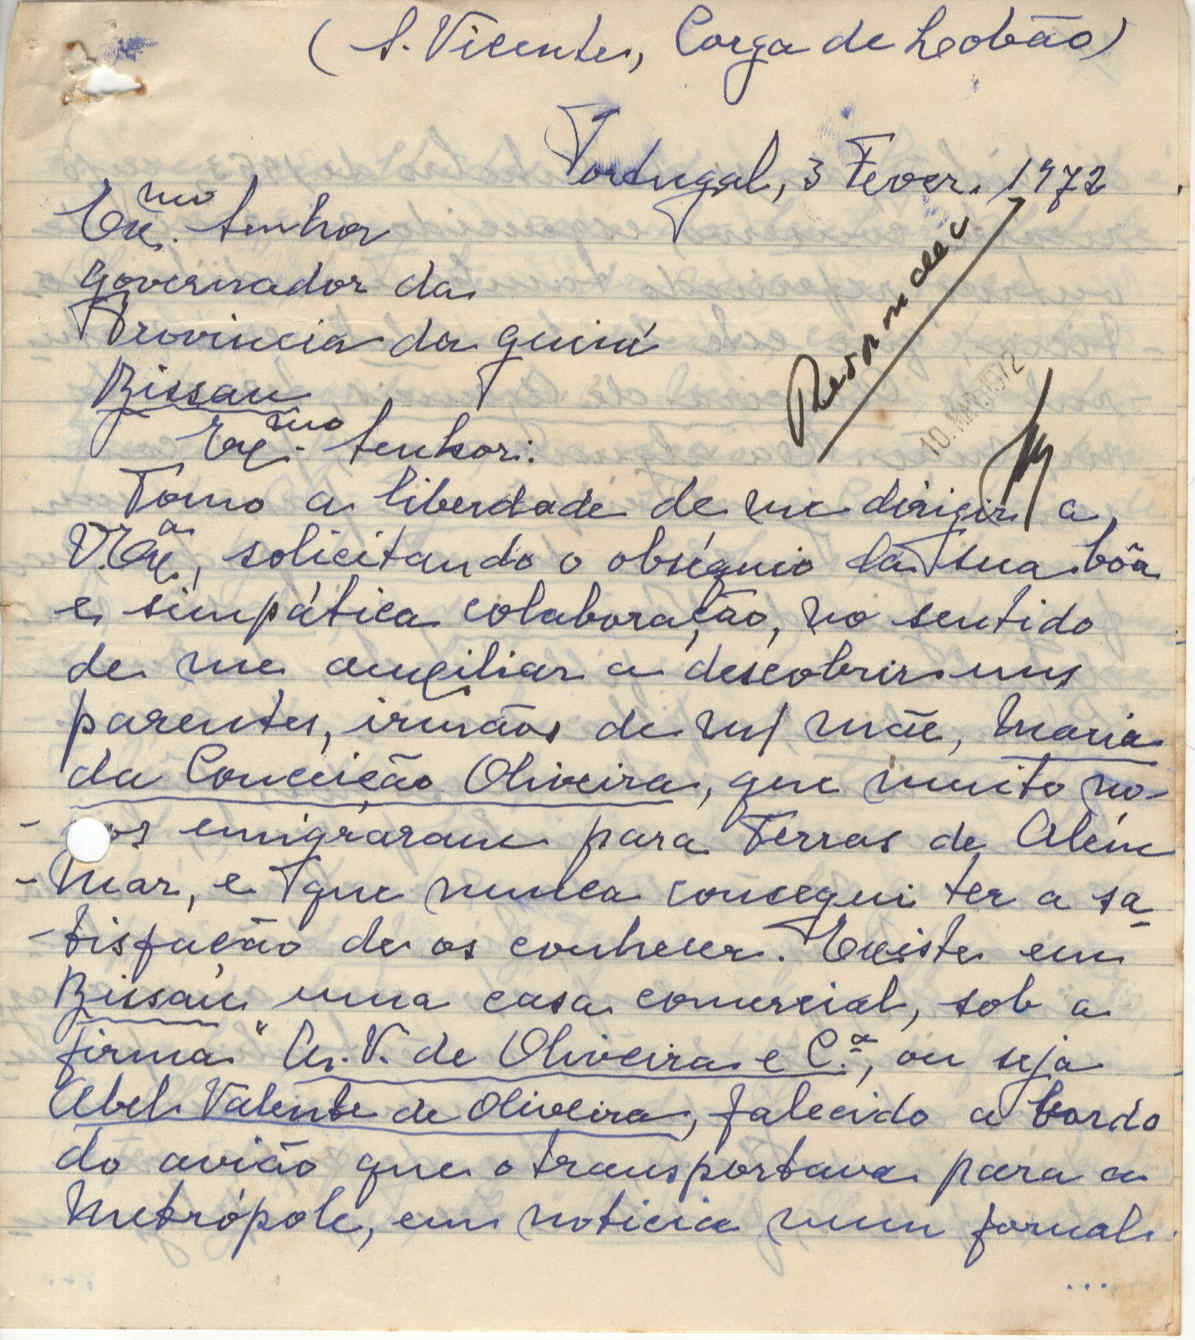 (S. Vicente, Corga de Lobão)
Portugal, 3 Fever. 1972
Exmo. Senhor
Governador da
Provincia da Guiné
Bissau
Respondido
10. MAR. 1972
Exmo. Senhor:
Tomo a liberdade de me dirigir a
V. Exª., solicitando o obséquio da sua bôa
e simpática colaboração, no sentido
de me auxiliar a descobrir uns
parentes, irmãos de m/ mãe, Maria
da Conceição Oliveira, que muito no-
-vos emigraram para Terras de Além
-Mar, e que nunca consegui ter a sa-
-tisfação de os conhecer. Existe em
Bissau uma casa comercial, sob a
firma "A. V. de Oliveira e C.ª, ou seja
Abel Valente de Oliveira, falecido a bordo
do avião que o transportava para a
Metrópole, em noticia num jornal.
...